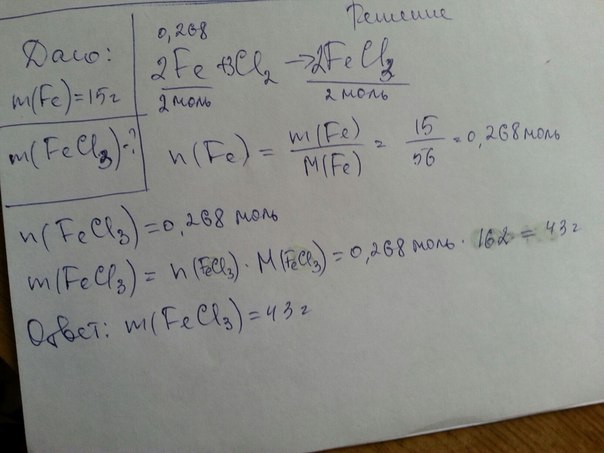 Решение
Дано:
m(Fe)=15г
m(FeCl3)-?
0,268
2Fe+3Cl2 → 2FeCl3
2моль 2 моль
n(Fe) = m(Fe)/M(Fe) = 15/56 = 0,268 моль
n(FeCl3)=0,268 моль
m(FeCl3) = n(FeCl3) · M(FeCl3) = 0,268 моль · 162 = 43 г
Ответ: m(FeCl3)=43г